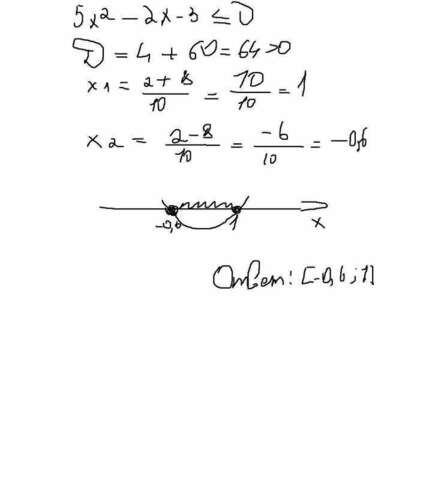 5x² - 2x - 3 ≤ 0
D = 4 + 60 = 64 > 0
x1 = (2+8)/10 = 10/10 = 1
x2 = (2-8)/10 = -6/10 = -0,6
-0,6 1 x
Ответ: [-0,6; 1]